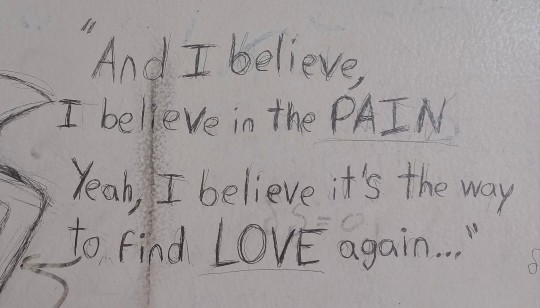 "And I believe,
I believe in the PAIN
Yeah, I believe it's the way
to find LOVE again..."